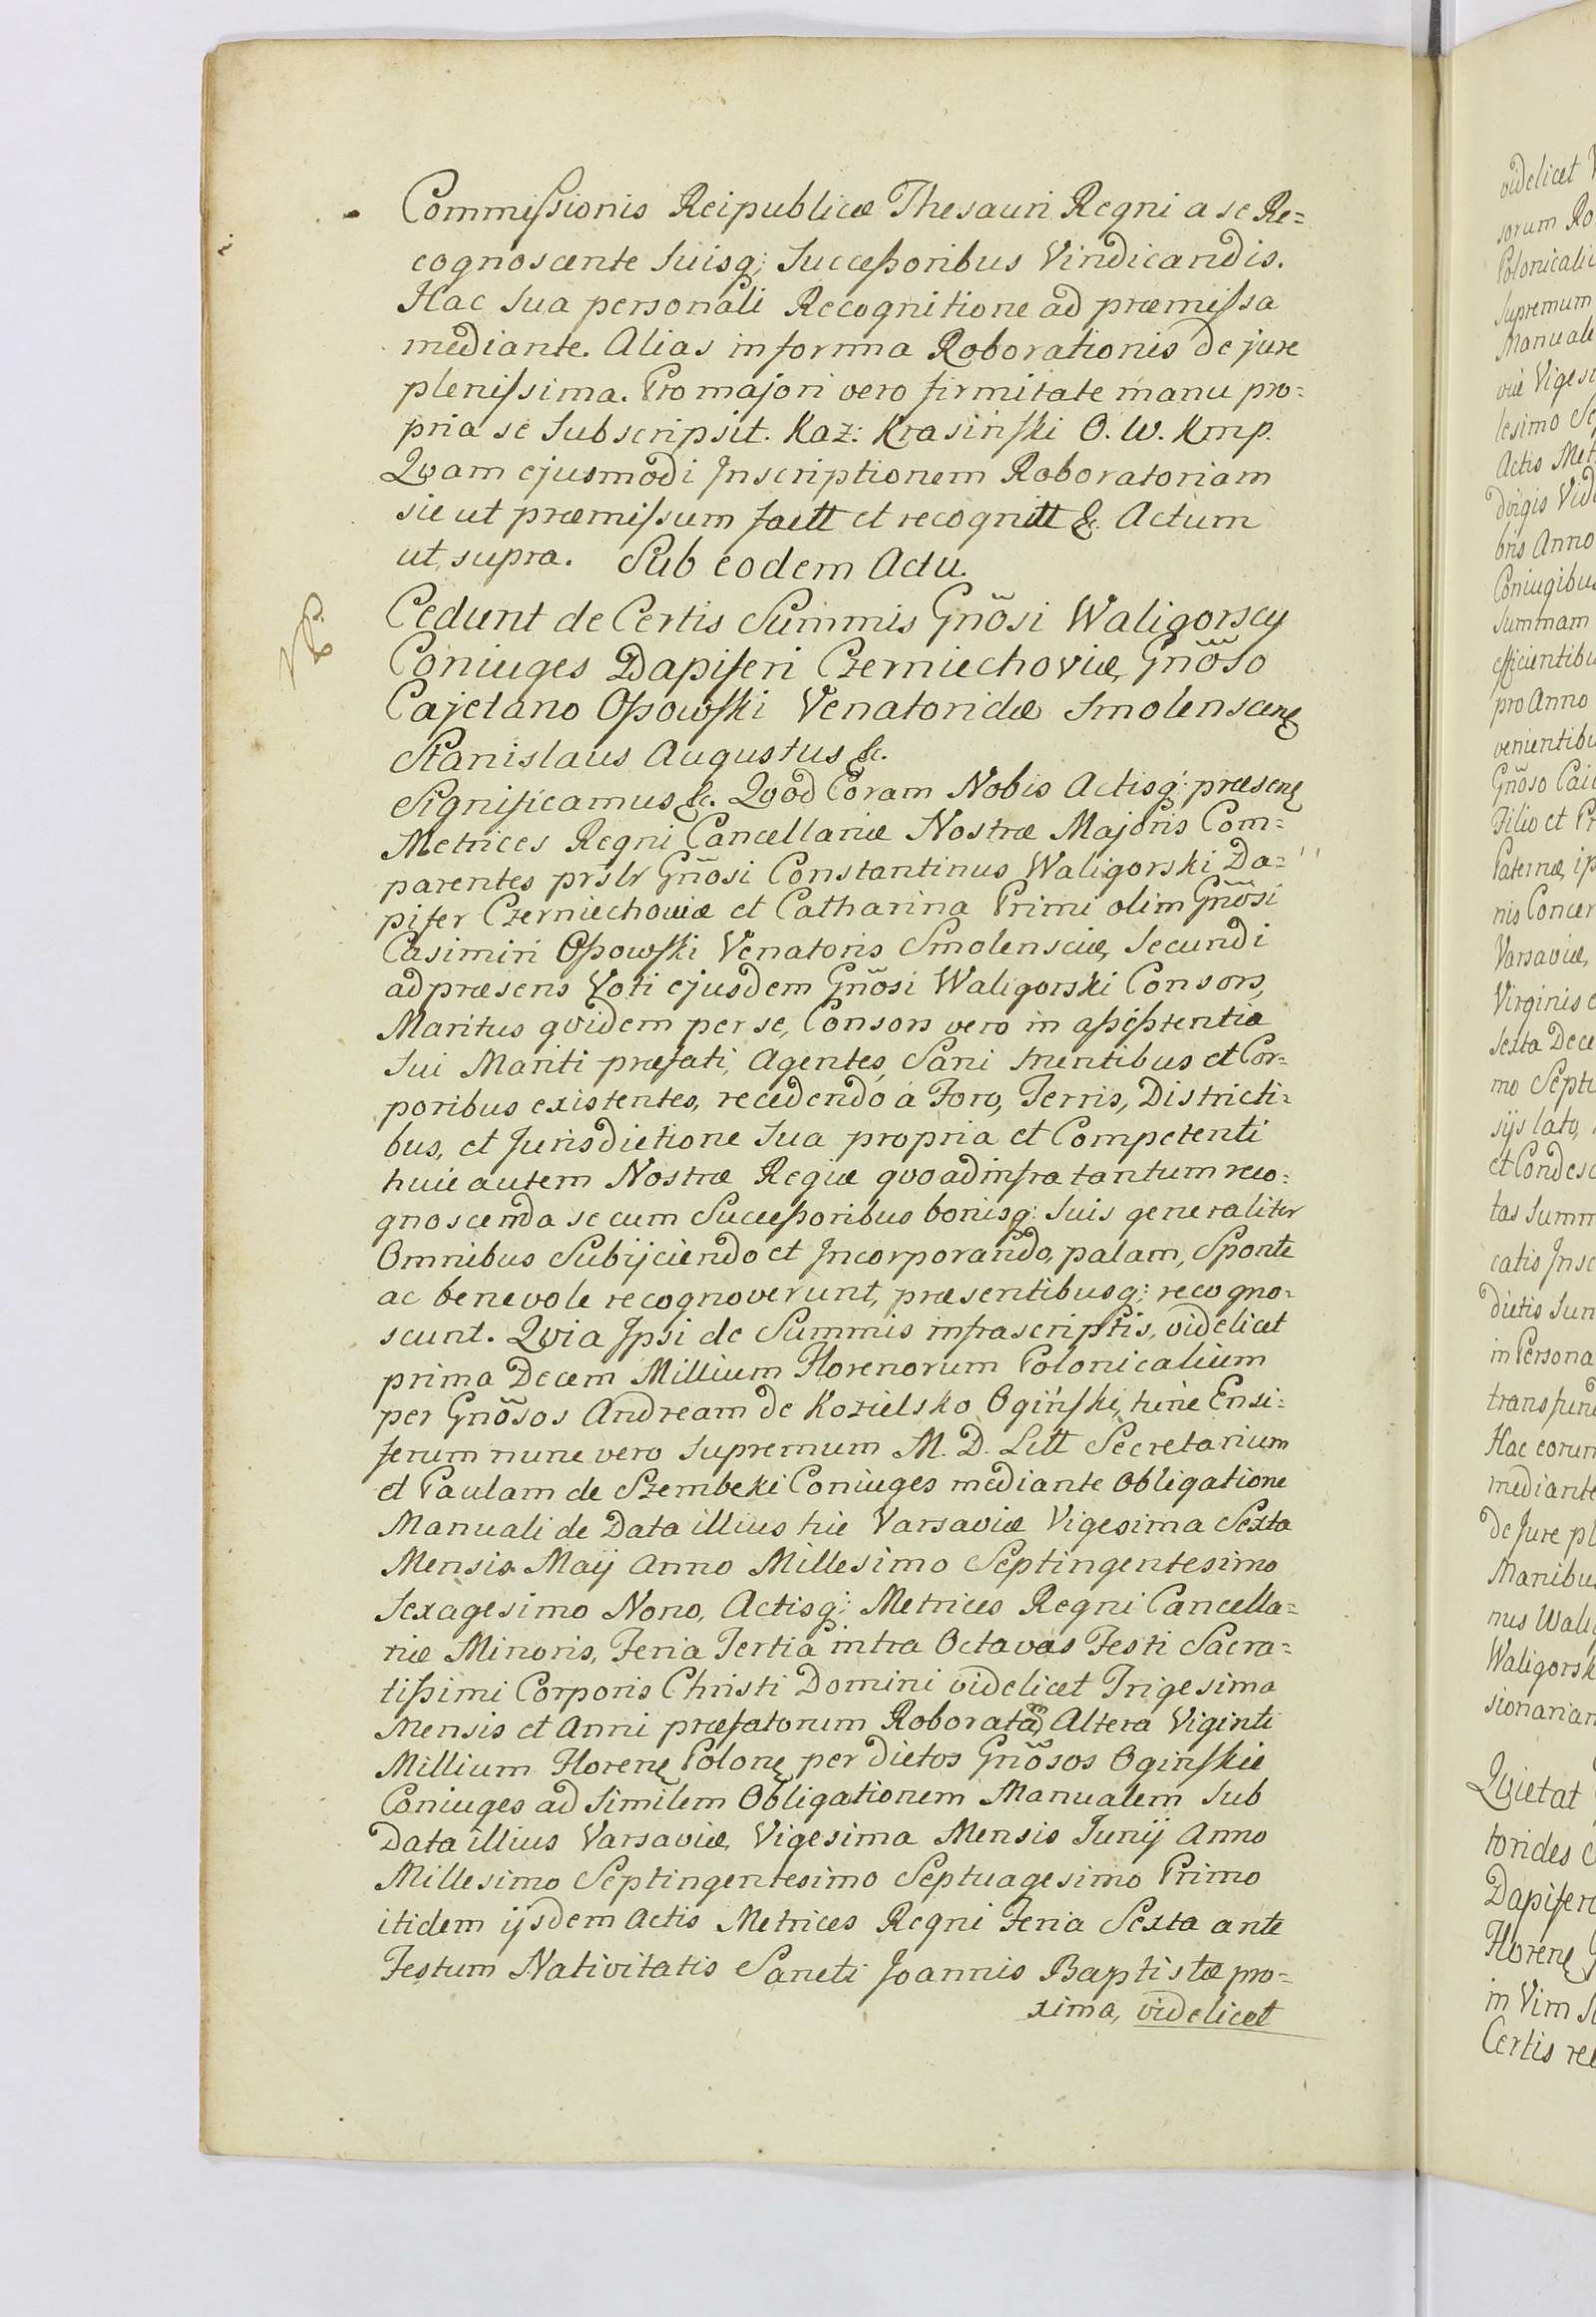 Commissionis Reipublicæ Thesauri Regni a se Re=
cognoscente Suisq; Successoribus Vindicandis.
Hac Sua personali Recognitione ad præmissa
mediante. Alias in forma Roborationis de jure
plenissima. Pro majori vero firmitate manu pro=
pria se Subscripsit. Kaz: Krasiński O. W. Kmp.
Qvam ejusmodi Inscriptionem Roboratoriam
sic ut præmissum factt et recognitt &. Actum
ut supra. Sub eodem Actu.
NB
Cedunt de Certis Summis Gnõsi Waligorscy
Coniuges Dapiferi Czerniechoviæ, Gnõso
Cajetano Ossowski Venatoridæ Smolenscen
Stanislaus Augustus &c.
Significamus &c. Qvod Coram Nobis Actisq: præsen
Metrices Regni Cancellariæ Nostræ Majoris Com=
parentes prslr Gnõsi Constantinus Waligorski Da=
pifer Czerniechoviæ et Catharina Primi olim Gnõsi
Casimiri Ossowski Venatoris Smolensciæ, Secundi
ad præsens Voti ejusdem Gnõsi Waligorski Consors,
Maritus qvidem per se, Consors vero in assistentia
Sui Mariti præfati, Agentes, Sani mentibus et Cor=
poribus existentes, recedendo à Foro, Terris, Districti=
bus, et Jurisdictione Sua propria et Competenti
huic autem Nostræ Regiæ qvoad infra tantum reco=
gnoscenda se cum Successoribus bonisq: Suis generaliter
Omnibus Subijciendo et Incorporando, palam, Sponte
ac benevole recognoverunt, præsentibusq: recogno=
scunt. Qvia Ipsi de Summis infrascriptis, videlicet
prima Decem Millium Florenorum Polonicalium
per Gnõsos Andream de Kozielsko Ogiński, tunc Ensi=
ferum nunc vero Supremum M. D. Litt Secretarium
et Paulam de Szembeki Coniuges mediante Obligatione
Manuali de Data illius hic Varsaviæ Vigesima Sexta
Mensis Maij Anno Millesimo Septingentesimo
Sexagesimo Nono, Actisq: Metrices Regni Cancella=
riæ Minoris, Feria Tertia intra Octavas Festi Sacra=
tissimi Corporis Christi Domini videlicet Trigesima
Mensis et Anni præfatorum Roboratam, Altera Viginti
Millium Floren Polon per dictos Gnõsos Oginskie
Coniuges ad Similem Obligationem Manualem Sub
Data illius Varsaviæ, Vigesima Mensis Junij Anno
Millesimo Septingentesimo Septuagesimo Primo
itidem ijsdem Actis Metrices Regni Feria Sexta ante
Festum Nativitatis Sancti Joannis Baptistæ pro=
xima, videlicet
videlicet
sorum Ro
Polonicali
Supremum
Manuale
viæ Vigesi
lesimo Se
Actis Met
bris Anno
Coniugibus
Summam
efficientibu
pro Anno
venientibu
Gnõso Cai
Filio et Pr
Paternæ, ip
nis Concer
Varsaviæ,
Virginis
Sexta Dece
mo Septu
sijs lato,
et Condesc
tas Summ
catis Insc
dictis Sum
in Persona
transfund
Hac eorum
mediante
de Jure pl
Manibus
nus Walig
Waligorsk
sionarian
Qvietat
torides
Dapifero
Floren
in Vim
Certis re